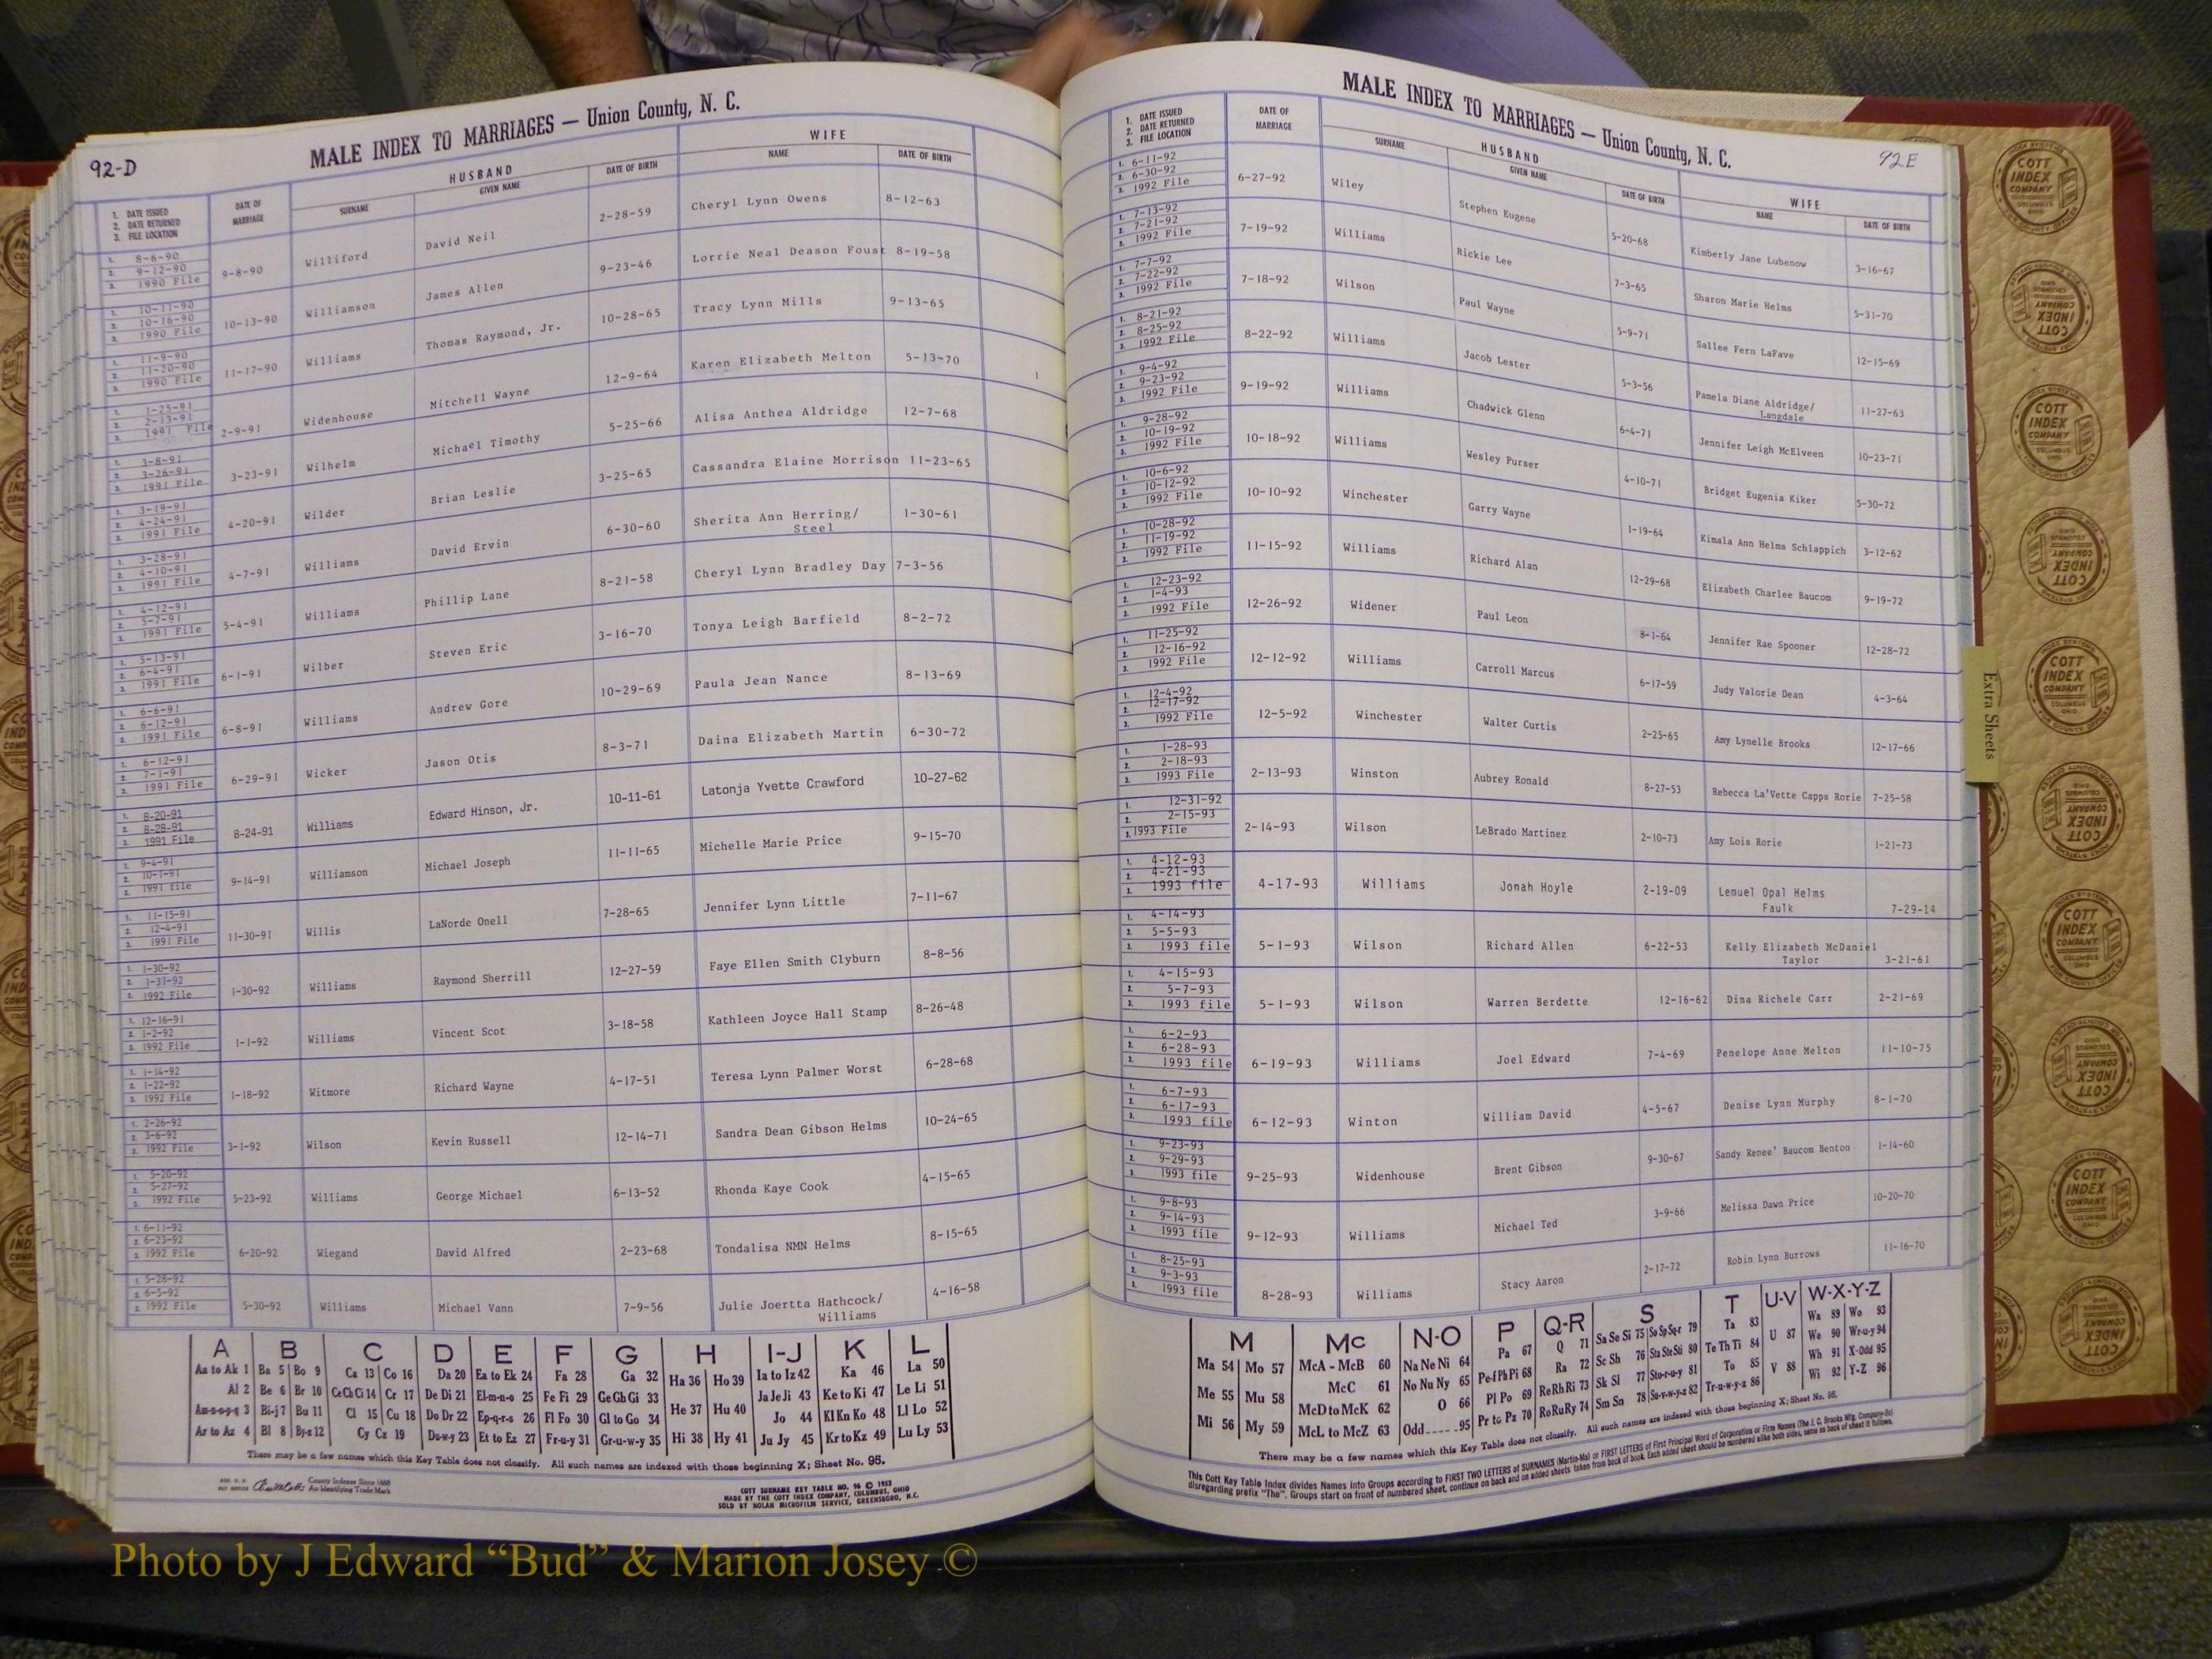 92-D
MALE INDEX TO MARRIAGES — Union County, N. C.
HUSBAND WIFE
1. DATE ISSUED 2. DATE RETURNED 3. FILE LOCATION DATE OF MARRIAGE SURNAME GIVEN NAME DATE OF BIRTH NAME DATE OF BIRTH
1. 8-6-90 2. 9-12-90 3. 1990 File 9-8-90 Williford David Neil 2-28-59 Cheryl Lynn Owens 8-12-63
1. 10-11-90 2. 10-16-90 3. 1990 File 10-13-90 Williamson James Allen 9-23-46 Lorrie Neal Deason Foust 8-19-58
1. 11-9-90 2. 11-20-90 3. 1990 File 11-17-90 Williams Thomas Raymond, Jr. 10-28-65 Tracy Lynn Mills 9-13-65
1. 1-25-91 2. 2-13-91 3. 1991 File 2-9-91 Widenhouse Mitchell Wayne 12-9-64 Karen Elizabeth Melton 5-13-70
1. 3-8-91 2. 3-26-91 3. 1991 File 3-23-91 Wilhelm Michael Timothy 5-25-66 Alisa Anthea Aldridge 12-7-68
1. 3-19-91 2. 4-24-91 3. 1991 File 4-20-91 Wilder Brian Leslie 3-25-65 Cassandra Elaine Morrison 11-23-65
1. 3-28-91 2. 4-10-91 3. 1991 File 4-7-91 Williams David Ervin 6-30-60 Sherita Ann Herring/ Steel 1-30-61
1. 4-12-91 2. 5-7-91 3. 1991 File 5-4-91 Williams Phillip Lane 8-21-58 Cheryl Lynn Bradley Day 7-3-56
1. 5-13-91 2. 6-4-91 3. 1991 File 6-1-91 Wilber Steven Eric 3-16-70 Tonya Leigh Barfield 8-2-72
1. 6-6-91 2. 6-12-91 3. 1991 File 6-8-91 Williams Andrew Gore 10-29-69 Paula Jean Nance 8-13-69
1. 6-12-91 2. 7-1-91 3. 1991 File 6-29-91 Wicker Jason Otis 8-3-71 Daina Elizabeth Martin 6-30-72
1. 8-20-91 2. 8-28-91 3. 1991 File 8-24-91 Williams Edward Hinson, Jr. 10-11-61 Latonja Yvette Crawford 10-27-62
1. 9-4-91 2. 10-1-91 3. 1991 file 9-14-91 Williamson Michael Joseph 11-11-65 Michelle Marie Price 9-15-70
1. 11-15-91 2. 12-4-91 3. 1991 File 11-30-91 Willis LaNorde Onell 7-28-65 Jennifer Lynn Little 7-11-67
1. 1-30-92 2. 1-31-92 3. 1992 File 1-30-92 Williams Raymond Sherrill 12-27-59 Faye Ellen Smith Clyburn 8-8-56
1. 12-16-91 2. 1-2-92 3. 1992 File 1-1-92 Williams Vincent Scot 3-18-58 Kathleen Joyce Hall Stamp 8-26-48
1. 1-14-92 2. 1-22-92 3. 1992 File 1-18-92 Witmore Richard Wayne 4-17-51 Teresa Lynn Palmer Worst 6-28-68
1. 2-26-92 2. 3-6-92 3. 1992 File 3-1-92 Wilson Kevin Russell 12-14-71 Sandra Dean Gibson Helms 10-24-65
1. 5-20-92 2. 5-27-92 3. 1992 File 5-23-92 Williams George Michael 6-13-52 Rhonda Kaye Cook 4-15-65
1. 6-11-92 2. 6-23-92 3. 1992 File 6-20-92 Wiegand David Alfred 2-23-68 Tondalisa NMN Helms 8-15-65
1. 5-28-92 2. 6-5-92 3. 1992 File 5-30-92 Williams Michael Vann 7-9-56 Julie Joertta Hathcock/ Williams 4-16-58
A B C D E F G H I-J K L
Aa to Ak 1 Ba 5 Bo 9 Ca 13 Co 16 Da 20 Ea to Ek 24 Fa 28 Ga 32 Ha 36 Ho 39 Ia to Iz 42 Ka 46 La 50
Al 2 Be 6 Br 10 Ce Ch Ci 14 Cr 17 De Di 21 El-m-n-o 25 Fe Fi 29 Ge Gh Gi 33 He 37 Hu 40 Ja Je Ji 43 Ke to Ki 47 Le Li 51
Am-n-o-p-q 3 Bi-j 7 Bu 11 Cl 15 Cu 18 Do Dr 22 Ep-q-r-s 26 Fl Fo 30 Gl to Go 34 Jo 44 Kl Kn Ko 48 Ll Lo 52
Ar to Az 4 Bl 8 By-z 12 Cy Cz 19 Du-w-y 23 Et to Ez 27 Fr-u-y 31 Gr-u-w-y 35 Hi 38 Hy 41 Ju Jy 45 Kr to Kz 49 Lu Ly 53
There may be a few names which this Key Table does not classify. All such names are indexed with those beginning X; Sheet No. 95.
County Indexes Since 1888
An Identifying Trade Mark
COTT SURNAME KEY TABLE NO. 96 © 1952
MADE BY THE COTT INDEX COMPANY, COLUMBUS, OHIO
SOLD BY NOLAN MICROFILM SERVICE, GREENSBORO, N.C.
MALE INDEX TO MARRIAGES — Union County, N. C.
92E
HUSBAND WIFE
1. DATE ISSUED 2. DATE RETURNED 3. FILE LOCATION DATE OF MARRIAGE SURNAME GIVEN NAME DATE OF BIRTH NAME DATE OF BIRTH
1. 6-11-92 2. 6-30-92 3. 1992 File 6-27-92 Wiley Stephen Eugene 5-20-68 Kimberly Jane Lubenow 3-16-67
1. 7-13-92 2. 7-21-92 3. 1992 File 7-19-92 Williams Rickie Lee 7-3-65 Sharon Marie Helms 5-31-70
1. 7-7-92 2. 7-22-92 3. 1992 File 7-18-92 Wilson Paul Wayne 5-9-71 Sallee Fern LaFave 12-15-69
1. 8-21-92 2. 8-25-92 3. 1992 File 8-22-92 Williams Jacob Lester 5-3-56 Pamela Diane Aldridge/ Langdale 11-27-63
1. 9-4-92 2. 9-23-92 3. 1992 File 9-19-92 Williams Chadwick Glenn 6-4-71 Jennifer Leigh McElveen 10-23-71
1. 9-28-92 2. 10-19-92 3. 1992 File 10-18-92 Williams Wesley Purser 4-10-71 Bridget Eugenia Kiker 5-30-72
1. 10-6-92 2. 10-12-92 3. 1992 File 10-10-92 Winchester Garry Wayne 1-19-64 Kimala Ann Helms Schlappich 3-12-62
1. 10-28-92 2. 11-19-92 3. 1992 File 11-15-92 Williams Richard Alan 12-29-68 Elizabeth Charlee Baucom 9-19-72
1. 12-23-92 2. 1-4-93 3. 1992 File 12-26-92 Widener Paul Leon 8-1-64 Jennifer Rae Spooner 12-28-72
1. 11-25-92 2. 12-16-92 3. 1992 File 12-12-92 Williams Carroll Marcus 6-17-59 Judy Valorie Dean 4-3-64
1. 12-4-92 2. 12-17-92 3. 1992 File 12-5-92 Winchester Walter Curtis 2-25-65 Amy Lynelle Brooks 12-17-66
1. 1-28-93 2. 2-18-93 3. 1993 File 2-13-93 Winston Aubrey Ronald 8-27-53 Rebecca La'Vette Capps Rorie 7-25-58
1. 12-31-92 2. 2-15-93 3. 1993 File 2-14-93 Wilson LeBrado Martinez 2-10-73 Amy Lois Rorie 1-21-73
1. 4-12-93 2. 4-21-93 3. 1993 file 4-17-93 Williams Jonah Hoyle 2-19-09 Lemuel Opal Helms Faulk 7-29-14
1. 4-14-93 2. 5-5-93 3. 1993 file 5-1-93 Wilson Richard Allen 6-22-53 Kelly Elizabeth McDaniel Taylor 3-21-61
1. 4-15-93 2. 5-7-93 3. 1993 file 5-1-93 Wilson Warren Berdette 12-16-62 Dina Richele Carr 2-21-69
1. 6-2-93 2. 6-28-93 3. 1993 file 6-19-93 Williams Joel Edward 7-4-69 Penelope Anne Melton 11-10-75
1. 6-7-93 2. 6-17-93 3. 1993 file 6-12-93 Winton William David 4-5-67 Denise Lynn Murphy 8-1-70
1. 9-23-93 2. 9-29-93 3. 1993 file 9-25-93 Widenhouse Brent Gibson 9-30-67 Sandy Renee' Baucom Benton 1-14-60
1. 9-8-93 2. 9-14-93 3. 1993 file 9-12-93 Williams Michael Ted 3-9-66 Melissa Dawn Price 10-20-70
1. 8-25-93 2. 9-3-93 3. 1993 file 8-28-93 Williams Stacy Aaron 2-17-72 Robin Lynn Burrows 11-16-70
M Mc N-O P Q-R S T U-V W-X-Y-Z
Ma 54 Mo 57 McA - McB 60 Na Ne Ni 64 Pa 67 Q 71 Sa Se Si 75 So Sp Sq-r 79 Ta 83 U 87 Wa 89 Wo 93
Me 55 Mu 58 McC 61 No Nu Ny 65 Pe-f Ph Pi 68 Ra 72 Sc Sh 76 Sta Ste Sti 80 Te Th Ti 84 V 88 We 90 Wr-u-y 94
McD to McK 62 O 66 Pl Po 69 Re Rh Ri 73 Sk Sl 77 Sto-r-u-y 81 To 85 Wh 91 X-Odd 95
Mi 56 My 59 McL to McZ 63 Odd 95 Pr to Pz 70 Ro Ru Ry 74 Sm Sn 78 Su-v-w-y-z 82 Tr-u-w-y-z 86 Wi 92 Y-Z 96
There may be a few names which this Key Table does not classify. All such names are indexed with those beginning X; Sheet No. 95.
This Cott Key Table Index divides Names into Groups according to FIRST TWO LETTERS of SURNAMES (Martin-Ma) or FIRST LETTERS of First Principal Word of Corporation or Firm Names (The J. C. Brooks Mfg. Company-Br)
disregarding prefix "The". Groups start on front of numbered sheet, continue on back and on added sheets taken from back of book. Each added sheet should be numbered alike both sides, same as back of sheet it follows.
Extra Sheets
COTT INDEX COMPANY COLUMBUS OHIO
Photo by J Edward “Bud” & Marion Josey ©